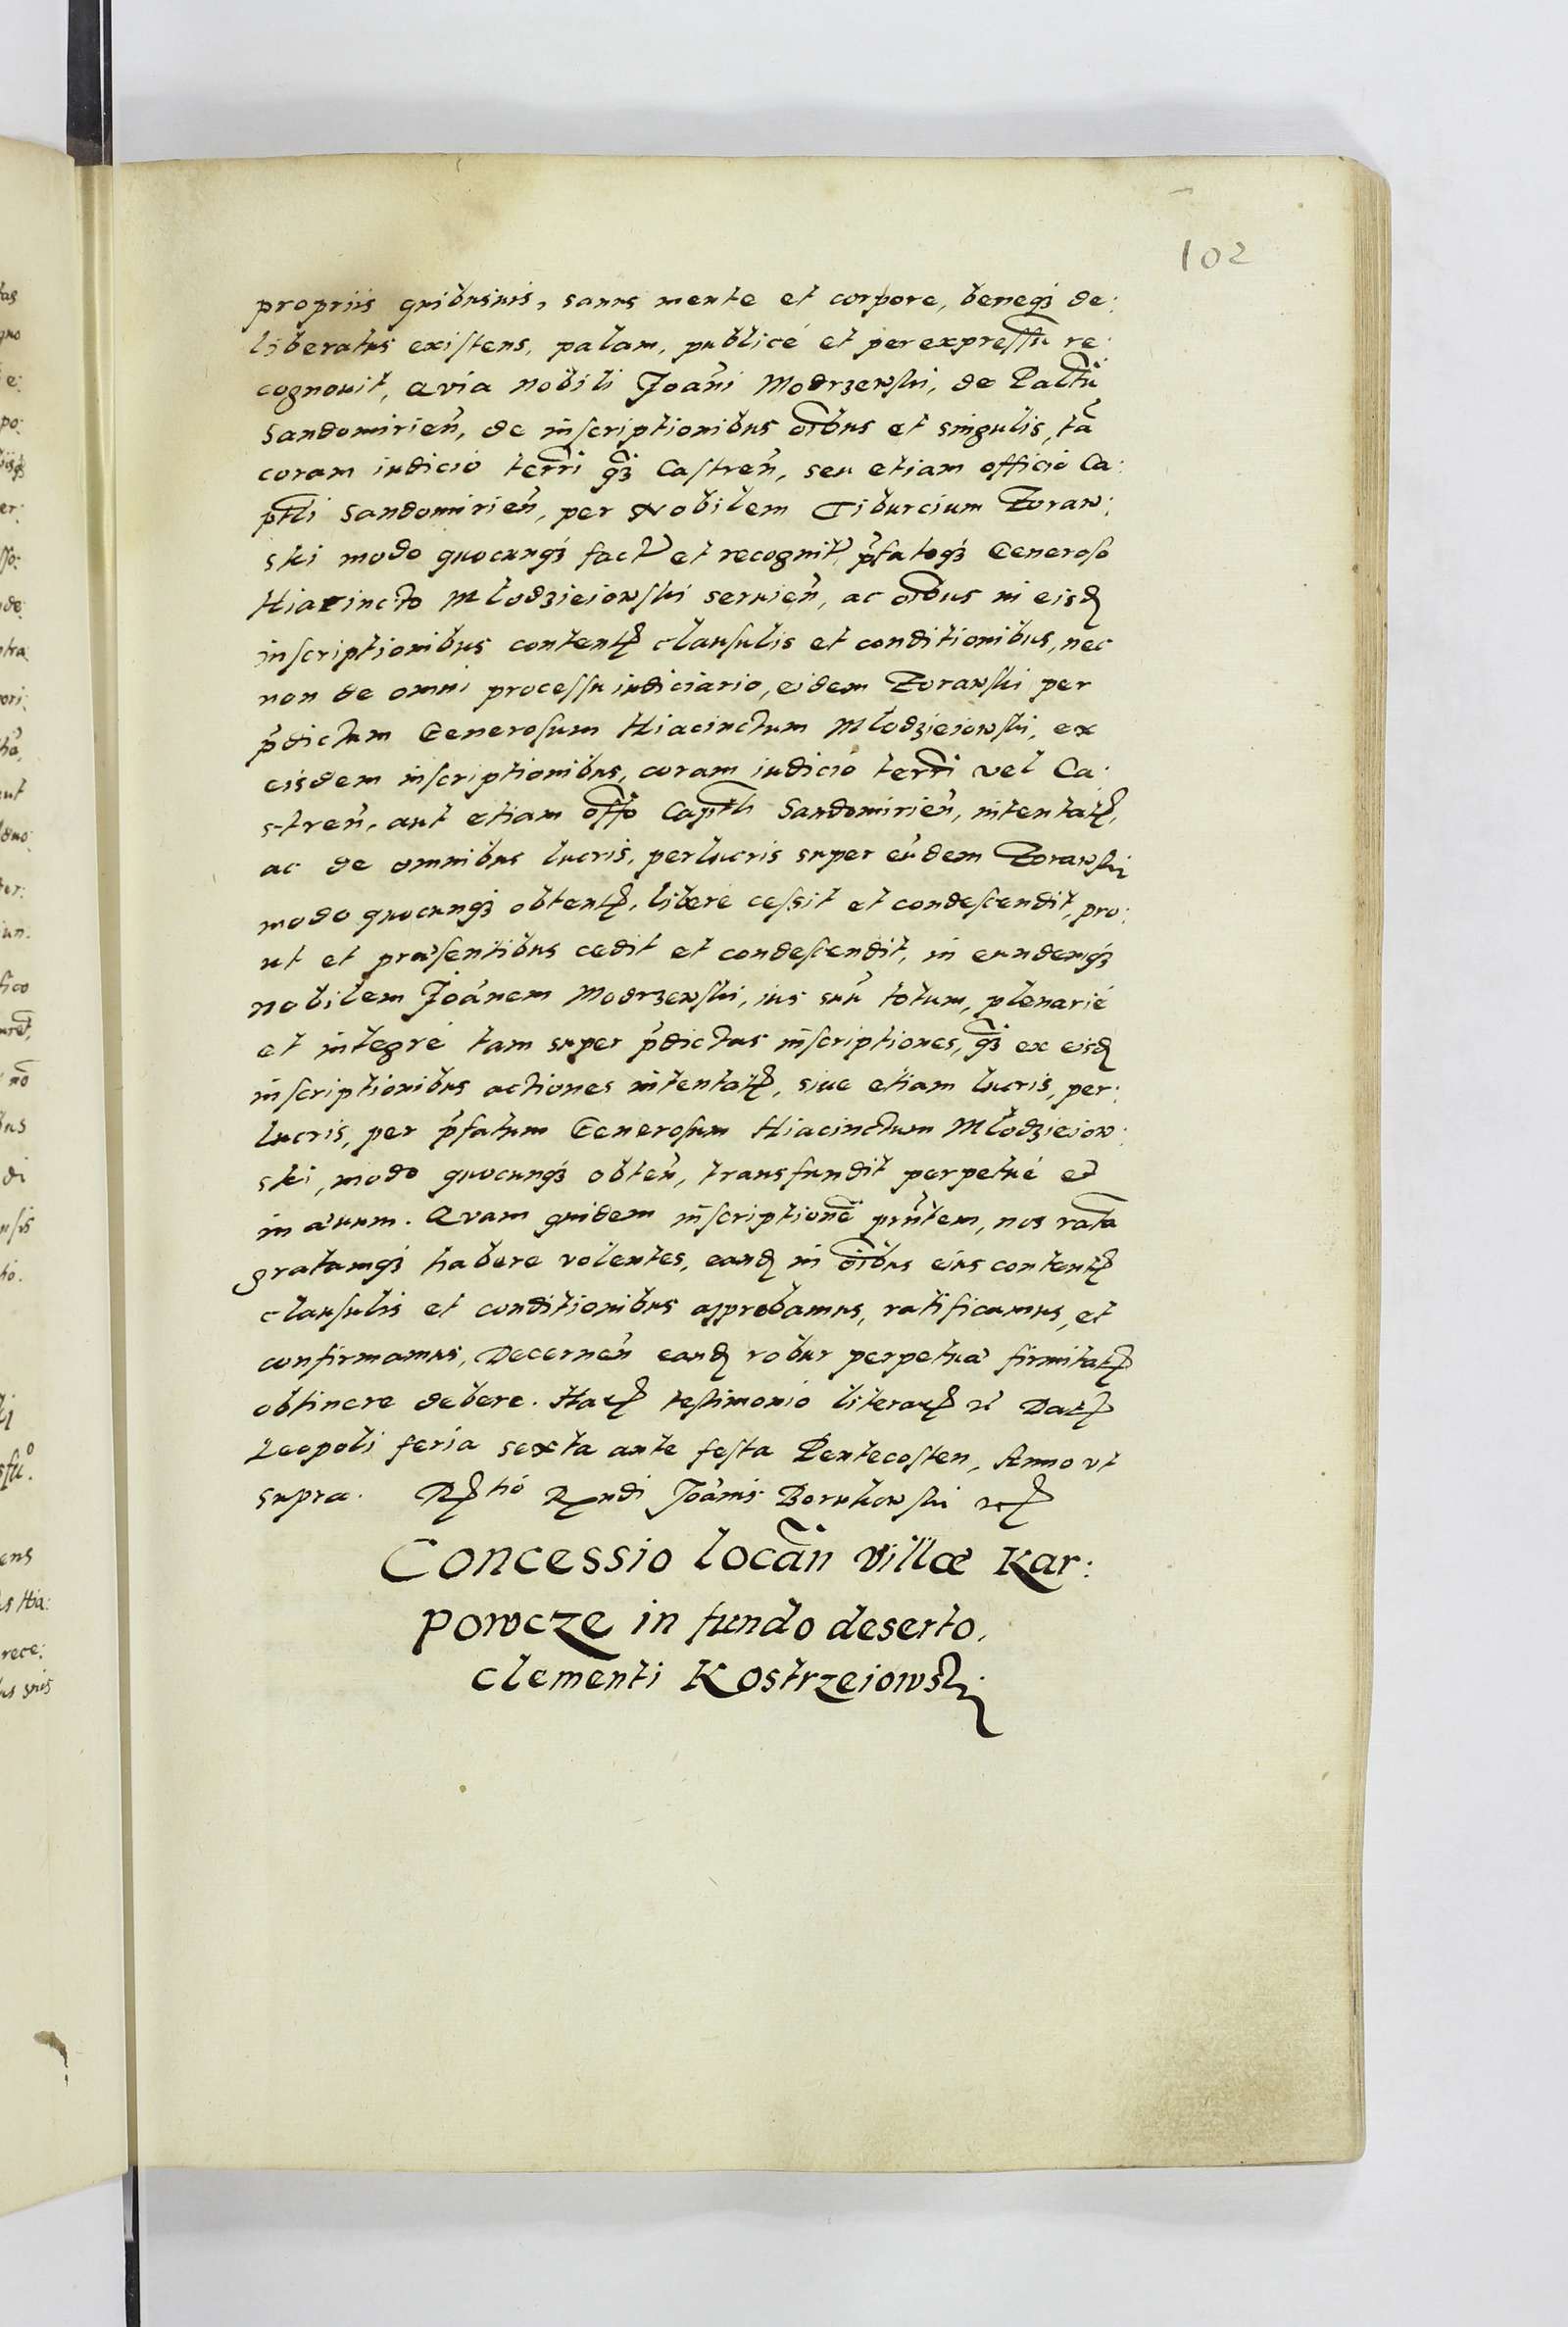 102
propriis quibusuis, sanus mente et corpore, beneq3 de:
liberatus existens, palam, publicé et per expressũ re:
cognouit, Qvia nobili Joãni Modrzewski, de Palatũ
Sandomirień, de inscriptionibus oĩbus et singulis, tã
coram iudicio terrĩ q̃3 Castreń, seu etiam officio Ca:
ptĩli Sandomirień, per Nobilem Tiburcium Zoraw:
ski modo quocunq3 fact̃ et recognit̃, p̃fatoq3 Generoso
Hiacincto Mlodzieiowski seruień, ac oĩbus in eisd̃
inscriptionibus content̃ clausulis et conditionibus, nec
non de omni processu iudiciario, eidem Zorawski per
p̃dictum Generosum Hiacinctum Mlodzieiowski, ex
eisdem inscriptionibus, coram iudicio terrĩ vel Ca:
streń, aut etiam offo Captĩli Sandomirień, intentat̃,
ac de omnibus lucris, perlucris super eũdem Zorawski
modo quocunq3 obtent̃, liberé cessit et condescendit, pro:
ut et præsentibus cedit et condescendit, in eundemq3
nobilem Joãnem Modrzewski, ius suũ totum, plenarié
et integré tam super p̃dictas inscriptiones, q̃3 ex eisd̃
inscriptionibus actiones intentat̃, siue etiam lucris, per:
lucris, per p̃fatum Generosum Hiacinctum Mlodzieiow:
ski, modo quocunq3 obteń, transfundit perpetué et
in æuum. Qvam quidem inscriptionẽ prñtem, nos ratã
gratamq3 habere volentes, eand̃ in oĩbus eius content̃
clausulis et conditionibus approbamus, ratificamus, et
confirmamus, Decerneń eand̃ robur perpetuæ firmitat̃
obtinere debere. Har̃ testimonio literar̃ Dat̃
Leopoli feria sexta ante festa Pentecosten, Anno vt
supra. R̃tió Rñdi Joãnis Borukowski
Concessio locãn villæ Kar:
powcze in fundo deserto,
clementi Kostrzeiowski